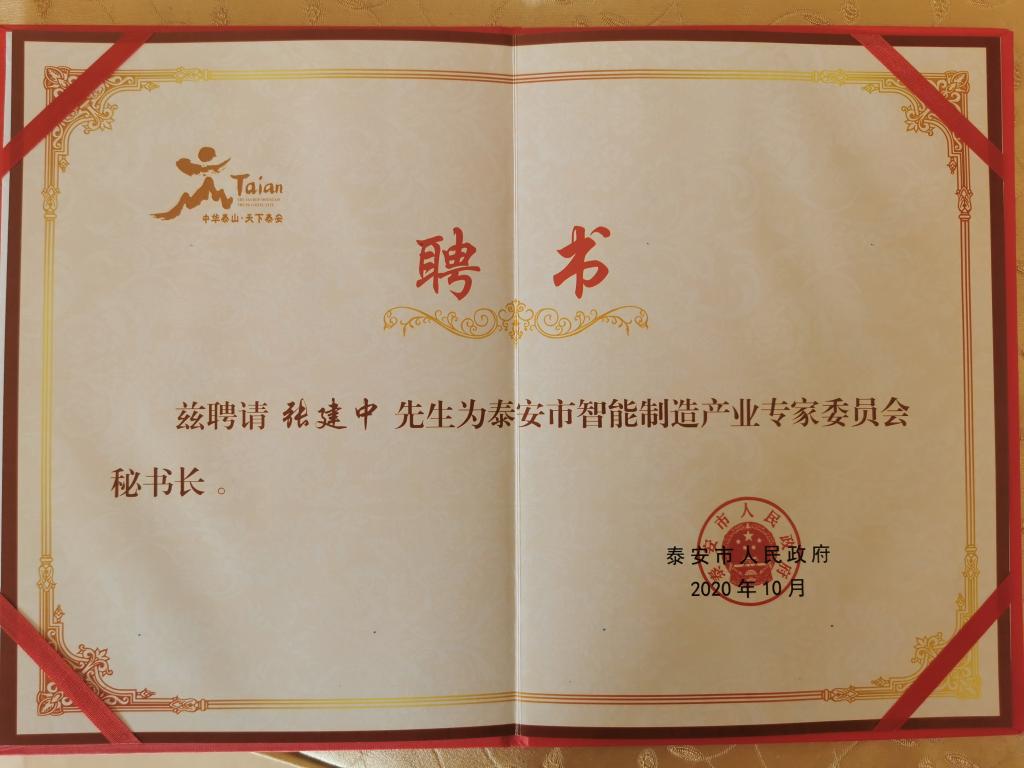 Taian
中华泰山·天下泰安
聘书
兹聘请 张建中 先生为泰安市智能制造产业专家委员会
秘书长。
泰安市人民政府
泰安市人民政府
2020年10月